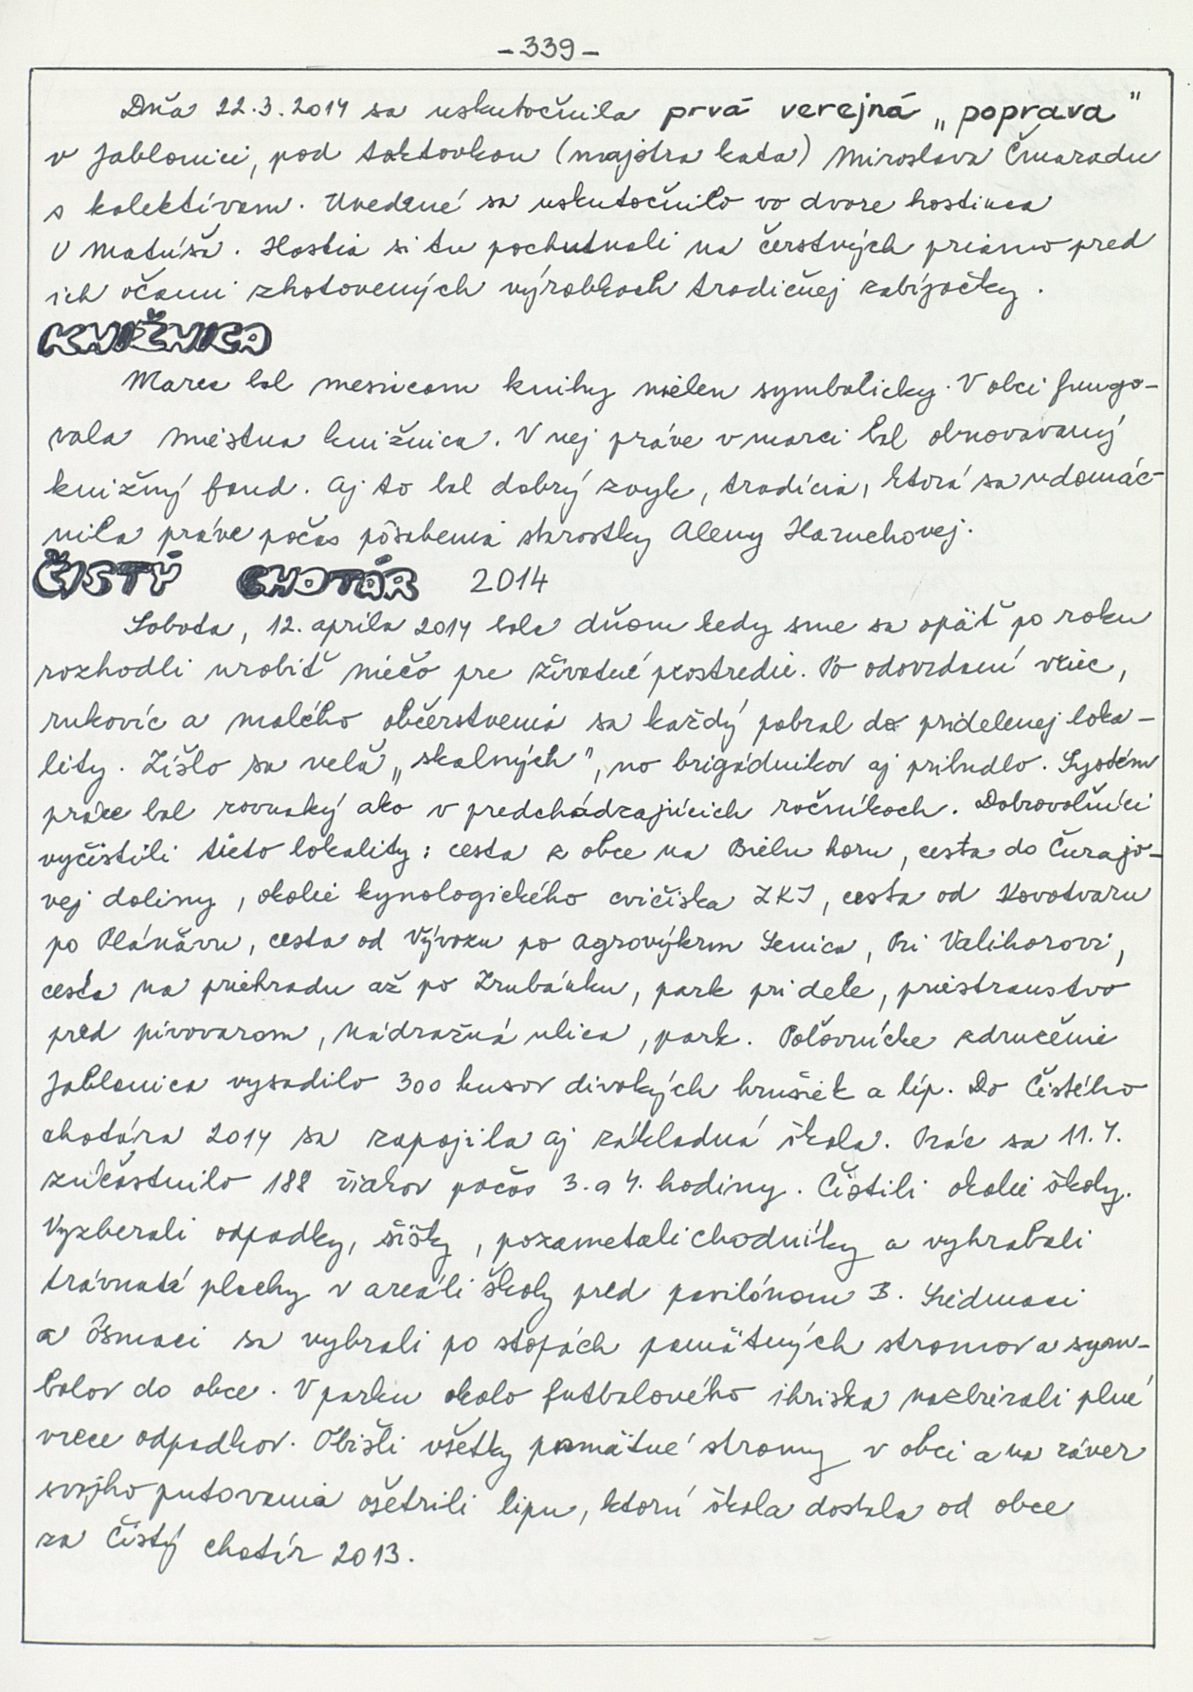 -339-
Dňa 22.3.2014 sa uskutočnila prvá verejná „poprava"
v Jablonici, pod taktovkou (majstra kata) Miroslava Čmaradu
s kolektívom. Uvedené sa uskutočnilo vo dvore hostinca
U Matúša. Hostia si tu pochutnali na čerstvých priamo pred
ich očami zhotovených výrobkoch tradičnej zabíjačky.
KNIŽNICA
Marec bol mesiacom knihy nielen symbolicky. V obci fungo-
vala miestna knižnica. V nej práve v marci bol obnovovaný
knižný fond. Aj to bol dobrý zvyk, tradícia, ktorá sa udomác-
nila práve počas pôsobenia starostky Aleny Hazuchovej.
ČISTÝ CHOTÁR 2014
Sobota, 12. apríla 2014 bola dňom kedy sme sa opäť po roku
rozhodli urobiť niečo pre životné prostredie. Po odovzdaní vriec,
rukovíc a malého občerstvenia sa každý pobral do pridelenej loka-
lity. Zišlo sa veľa „skalných", no brigádnikov aj pribudlo. Systém
práce bol rovnaký ako v predchádzajúcich ročníkoch. Dobrovoľníci
vyčistili tieto lokality: cesta z obce na Bielu horu, cesta do Čurajo-
vej doliny, okolie kynologického cvičiska ZKJ, cesta od Kovotvaru
po Plánavu, cesta od Vývozu po Agrovýkrm Senica, Pri Valihorovi,
cesta na priehradu až po Zrubánku, park pri dele, priestranstvo
pred pivovarom, Nádražná ulica, park. Poľovnícke združenie
Jablonica vysadilo 300 kusov divokých hrušiek a líp. Do Čistého
chotára 2014 sa zapojila aj základná škola. Prác sa 11.4.
zúčastnilo 188 žiakov počas 3. a 4. hodiny. Čistili okolie školy.
Vyzberali odpadky, šišky, pozametali chodníky a vyhrabali
trávnaté plochy v areáli školy pred pavilónom B. Siedmaci
a ôsmaci sa vybrali po stopách pamätných stromov a sym-
bolov do obce. V parku okolo futbalového ihriska nazbierali plné
vrece odpadkov. Obišli všetky pamätné stromy v obci a na záver
svojho putovania ošetrili lipu, ktorú škola dostala od obce
za Čistý chotár 2013.